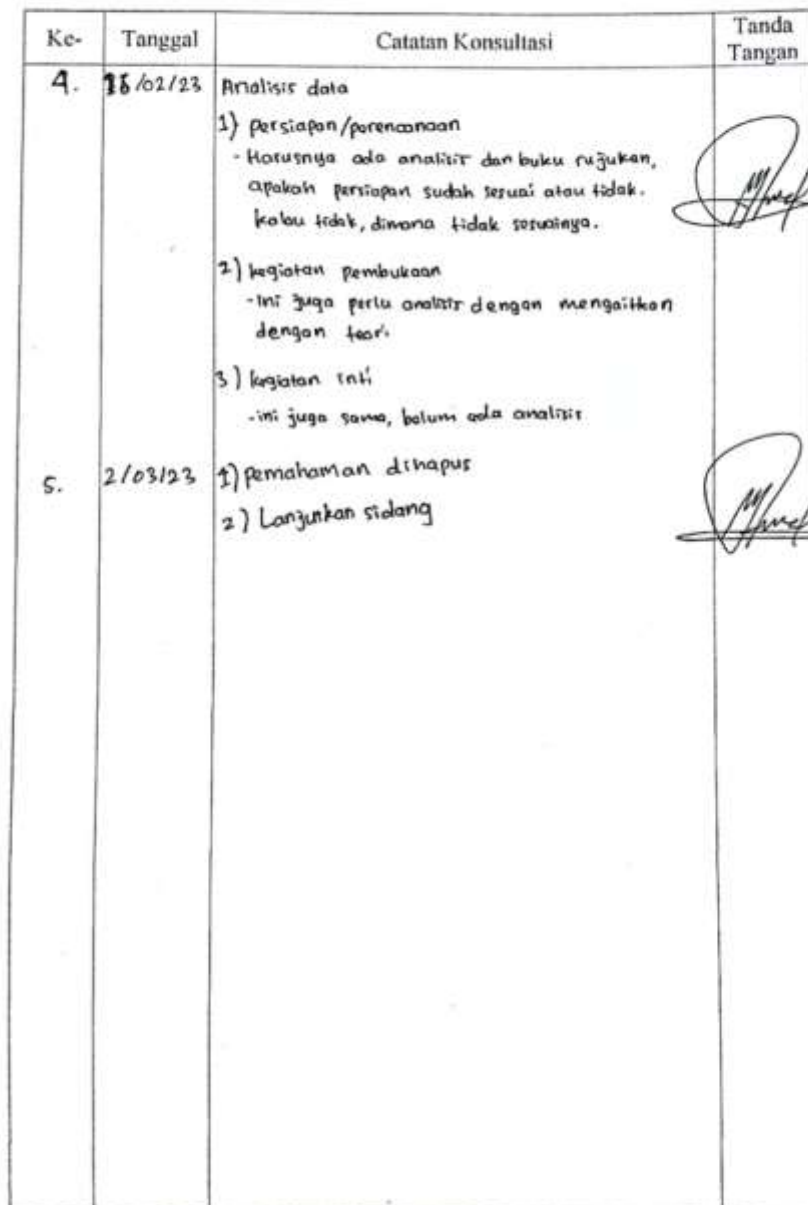 Ke- Tanggal Catatan Konsultasi Tanda Tangan
4. /02/23 Analisis data
1) persiapan/perencanaan
- Harusnya ada analisis dan buku rujukan,
apakah persiapan sudah sesuai atau tidak.
kalau tidak, dimana tidak sesuainya.
2) kegiatan pembukaan
- Ini juga perlu analisis dengan mengaitkan
dengan teori.
3) kegiatan inti
- ini juga sama, belum ada analisis
5. 2/03/23 1) pemahaman dihapus
2) Lanjutkan sidang